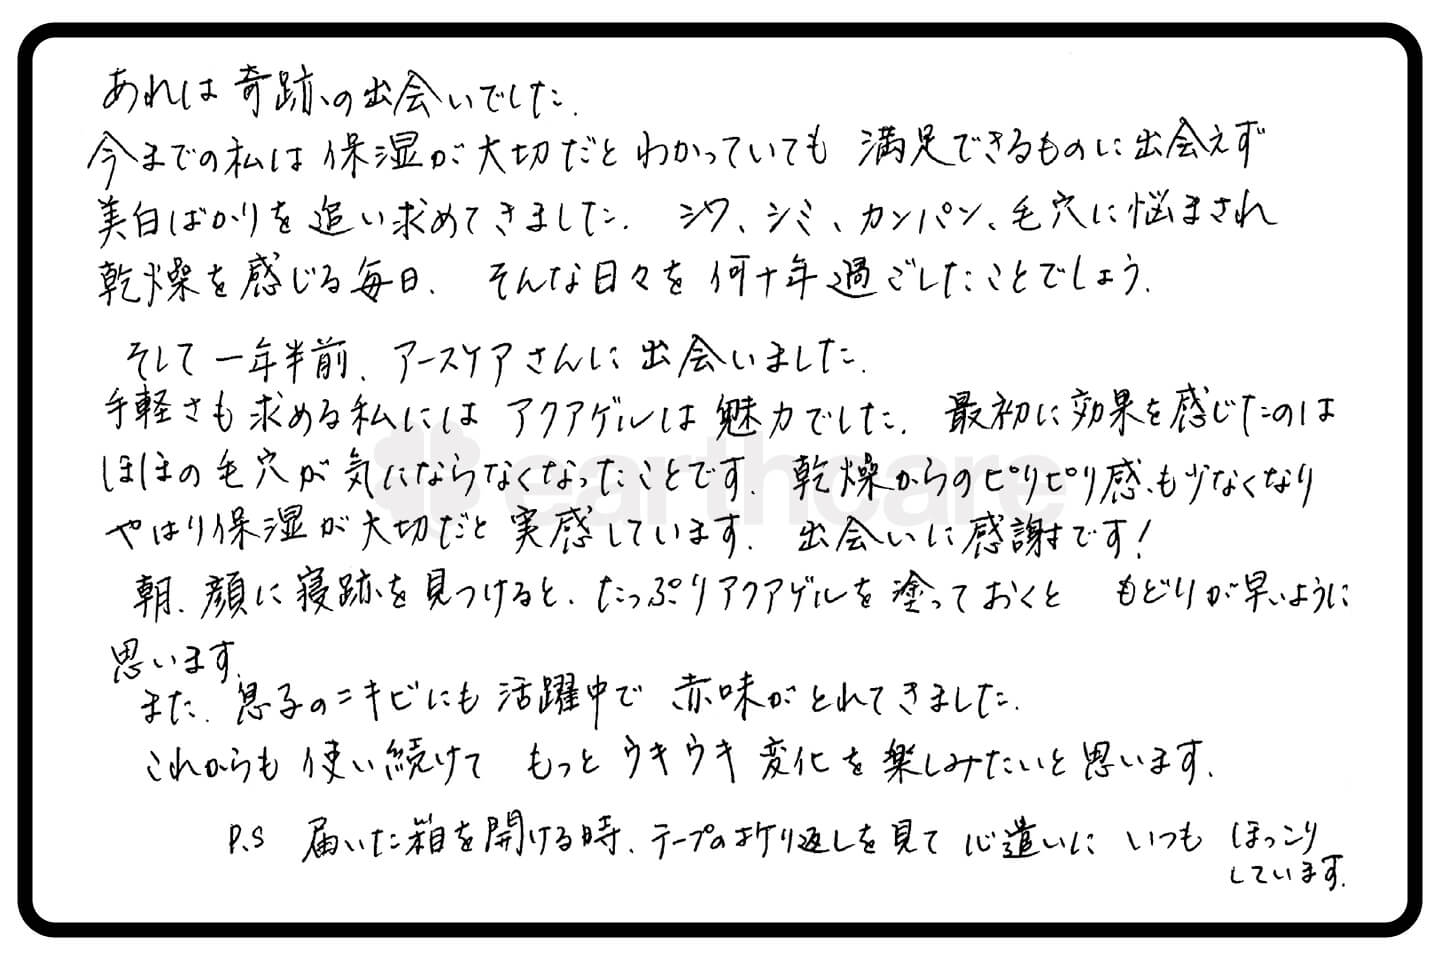 あれは奇跡の出会いでした.
今までの私は保湿が大切だとわかっていても 満足できるものに出会えず
美白ばかりを追い求めてきました. シワ、シミ、カンパン、毛穴に悩まされ
乾燥を感じる毎日. そんな日々を何十年過ごしたことでしょう.
そして一年半前、アースケアさんに出会いました.
手軽さも求める私にはアクアゲルは魅力でした. 最初に効果を感じたのは
ほほの毛穴が気にならなくなったことです. 乾燥からのピリピリ感も少なくなり
やはり保湿が大切だと実感しています. 出会いに感謝です!
朝、顔に寝跡を見つけると、たっぷりアクアゲルを塗っておくと もどりが早いように
思います.
また、息子のニキビにも活躍中で 赤味がとれてきました.
これからも使い続けて もっとウキウキ変化を楽しみたいと思います.
P.S 届いた箱を開ける時、テープの折り返しを見て 心遣いに いつも ほっこり
しています.
earthcare